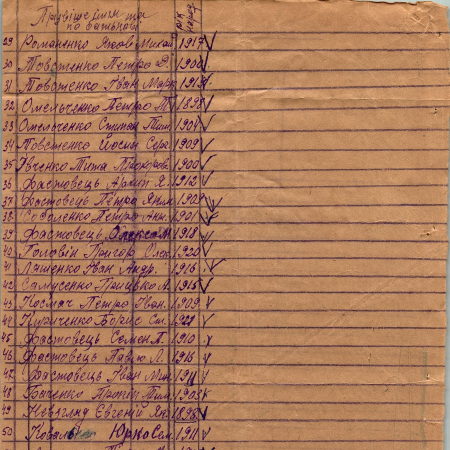 Прізвище ім'я та по батькові рік народ.
29 Романенко Яков Михай 1917
30 Товстенко Петро В. 1900
31 Товстенко Іван Марк 1913
32 Омельченко Петро 1898
33 Омельченко Степан Тим. 1904
34 Товстенко Йосип Сер. 1909
35 Явченко Тита Прохоров. 1900
36 Фастовець Архип Я. 1912
37 Фастовець Петро Яким 1902
38 Соболенко Петро Ан. 1901
39 Фастовець Олекса М 1918
40 Головін Григор Олек. 1920
41 Ляшенко Іван Андр. 1916
42 Самусенко Грицько А. 1915
43 Космач Петро Іван. 1909
44 Кириченко Борис Ст. 1921
45 Фастовець Семен А. 1910
46 Фастовець Павло Л. 1916
47 Фастовець Іван Мик. 1911
48 Биченко Прокіп Тим. 1903
49 Невзгляд Євгеній Як. 1895
50 Коваль Юрко Сем. 1911